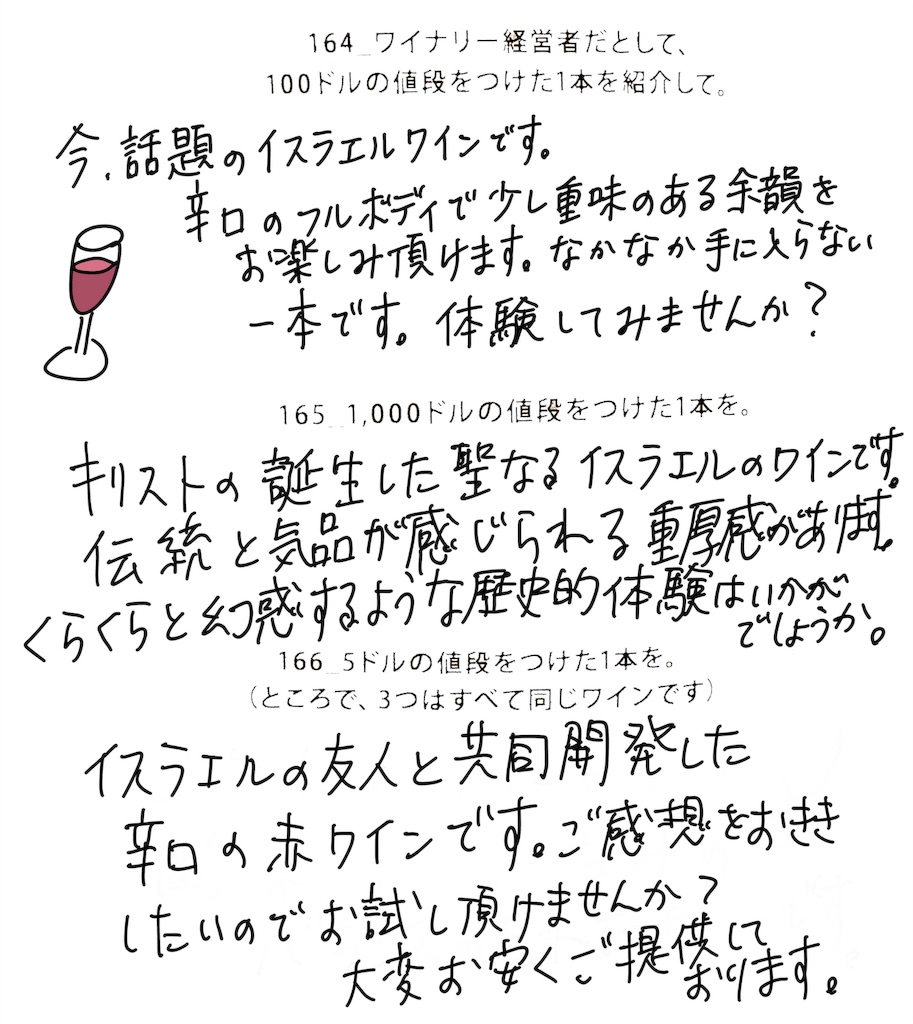 164_ワイナリー経営者だとして、
100ドルの値段をつけた1本を紹介して。
今、話題のイスラエルワインです。
辛口のフルボディで少し重味のある余韻を
お楽しみ頂けます。なかなか手に入らない
一本です。体験してみませんか?
165_1,000ドルの値段をつけた1本を。
キリストの誕生した聖なるイスラエルのワインです。
伝統と気品が感じられる重厚感があります。
くらくらと幻惑するような歴史的体験はいかが
でしょうか。
166_5ドルの値段をつけた1本を。
(ところで、3つはすべて同じワインです)
イスラエルの友人と共同開発した
辛口の赤ワインです。ご感想をおきき
したいのでお試し頂けませんか?
大変お安くご提供して
おります。